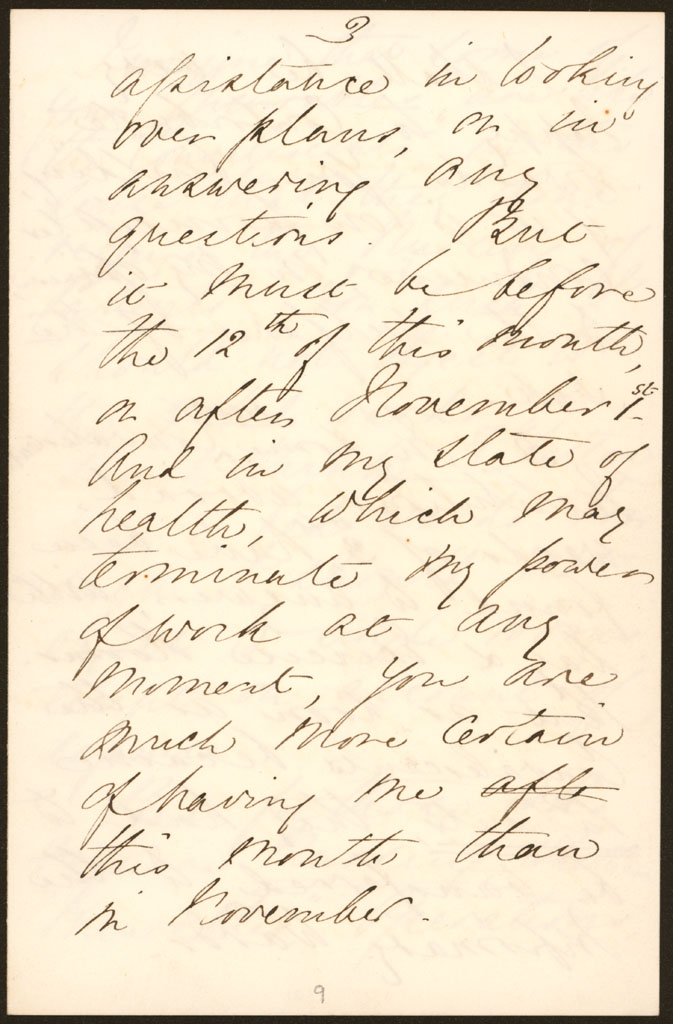 3
assistance in looking
over plans, or in
answering any
questions. But
it must be before
the 12th of this month,
or after November 1st.
And in my state of
health, which may
terminate my power
of work at any
moment, you are
much more certain
of having me afte
this month than
in November.
9